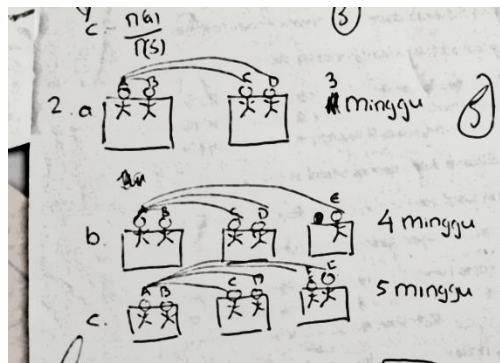 c - n(a)
n(s)
5
2. a A B C D 3 minggu
5
b. A B C D E 4 minggu
c. A B C D E F 5 minggu